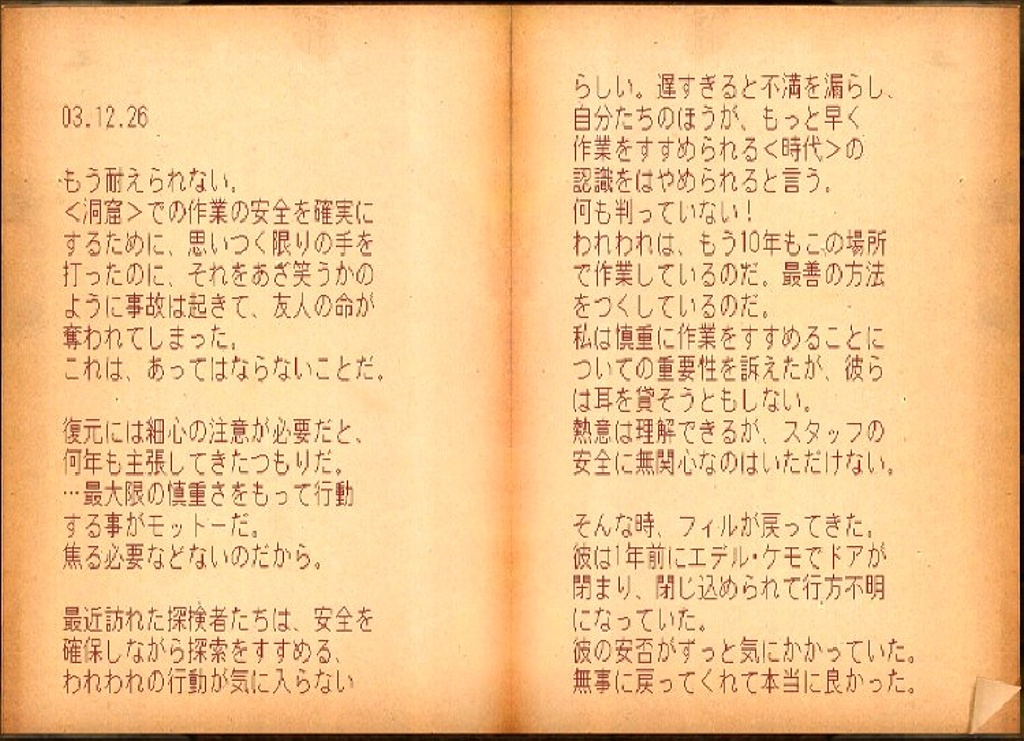 03.12.26
もう耐えられない。
＜洞窟＞での作業の安全を確実に
するために、思いつく限りの手を
打ったのに、それをあざ笑うかの
ように事故は起きて、友人の命が
奪われてしまった。
これは、あってはならないことだ。
復元には細心の注意が必要だと、
何年も主張してきたつもりだ。
…最大限の慎重さをもって行動
する事がモットーだ。
焦る必要などないのだから。
最近訪れた探検者たちは、安全を
確保しながら探索をすすめる、
われわれの行動が気に入らない
らしい。遅すぎると不満を漏らし、
自分たちのほうが、もっと早く
作業をすすめられる＜時代＞の
認識をはやめられると言う。
何も判っていない！
われわれは、もう10年もこの場所
で作業しているのだ。最善の方法
をつくしているのだ。
私は慎重に作業をすすめることに
ついての重要性を訴えたが、彼ら
は耳を貸そうともしない。
熱意は理解できるが、スタッフの
安全に無関心なのはいただけない。
そんな時、フィルが戻ってきた。
彼は1年前にエデル・ケモでドアが
閉まり、閉じ込められて行方不明
になっていた。
彼の安否がずっと気にかかっていた。
無事に戻ってくれて本当に良かった。